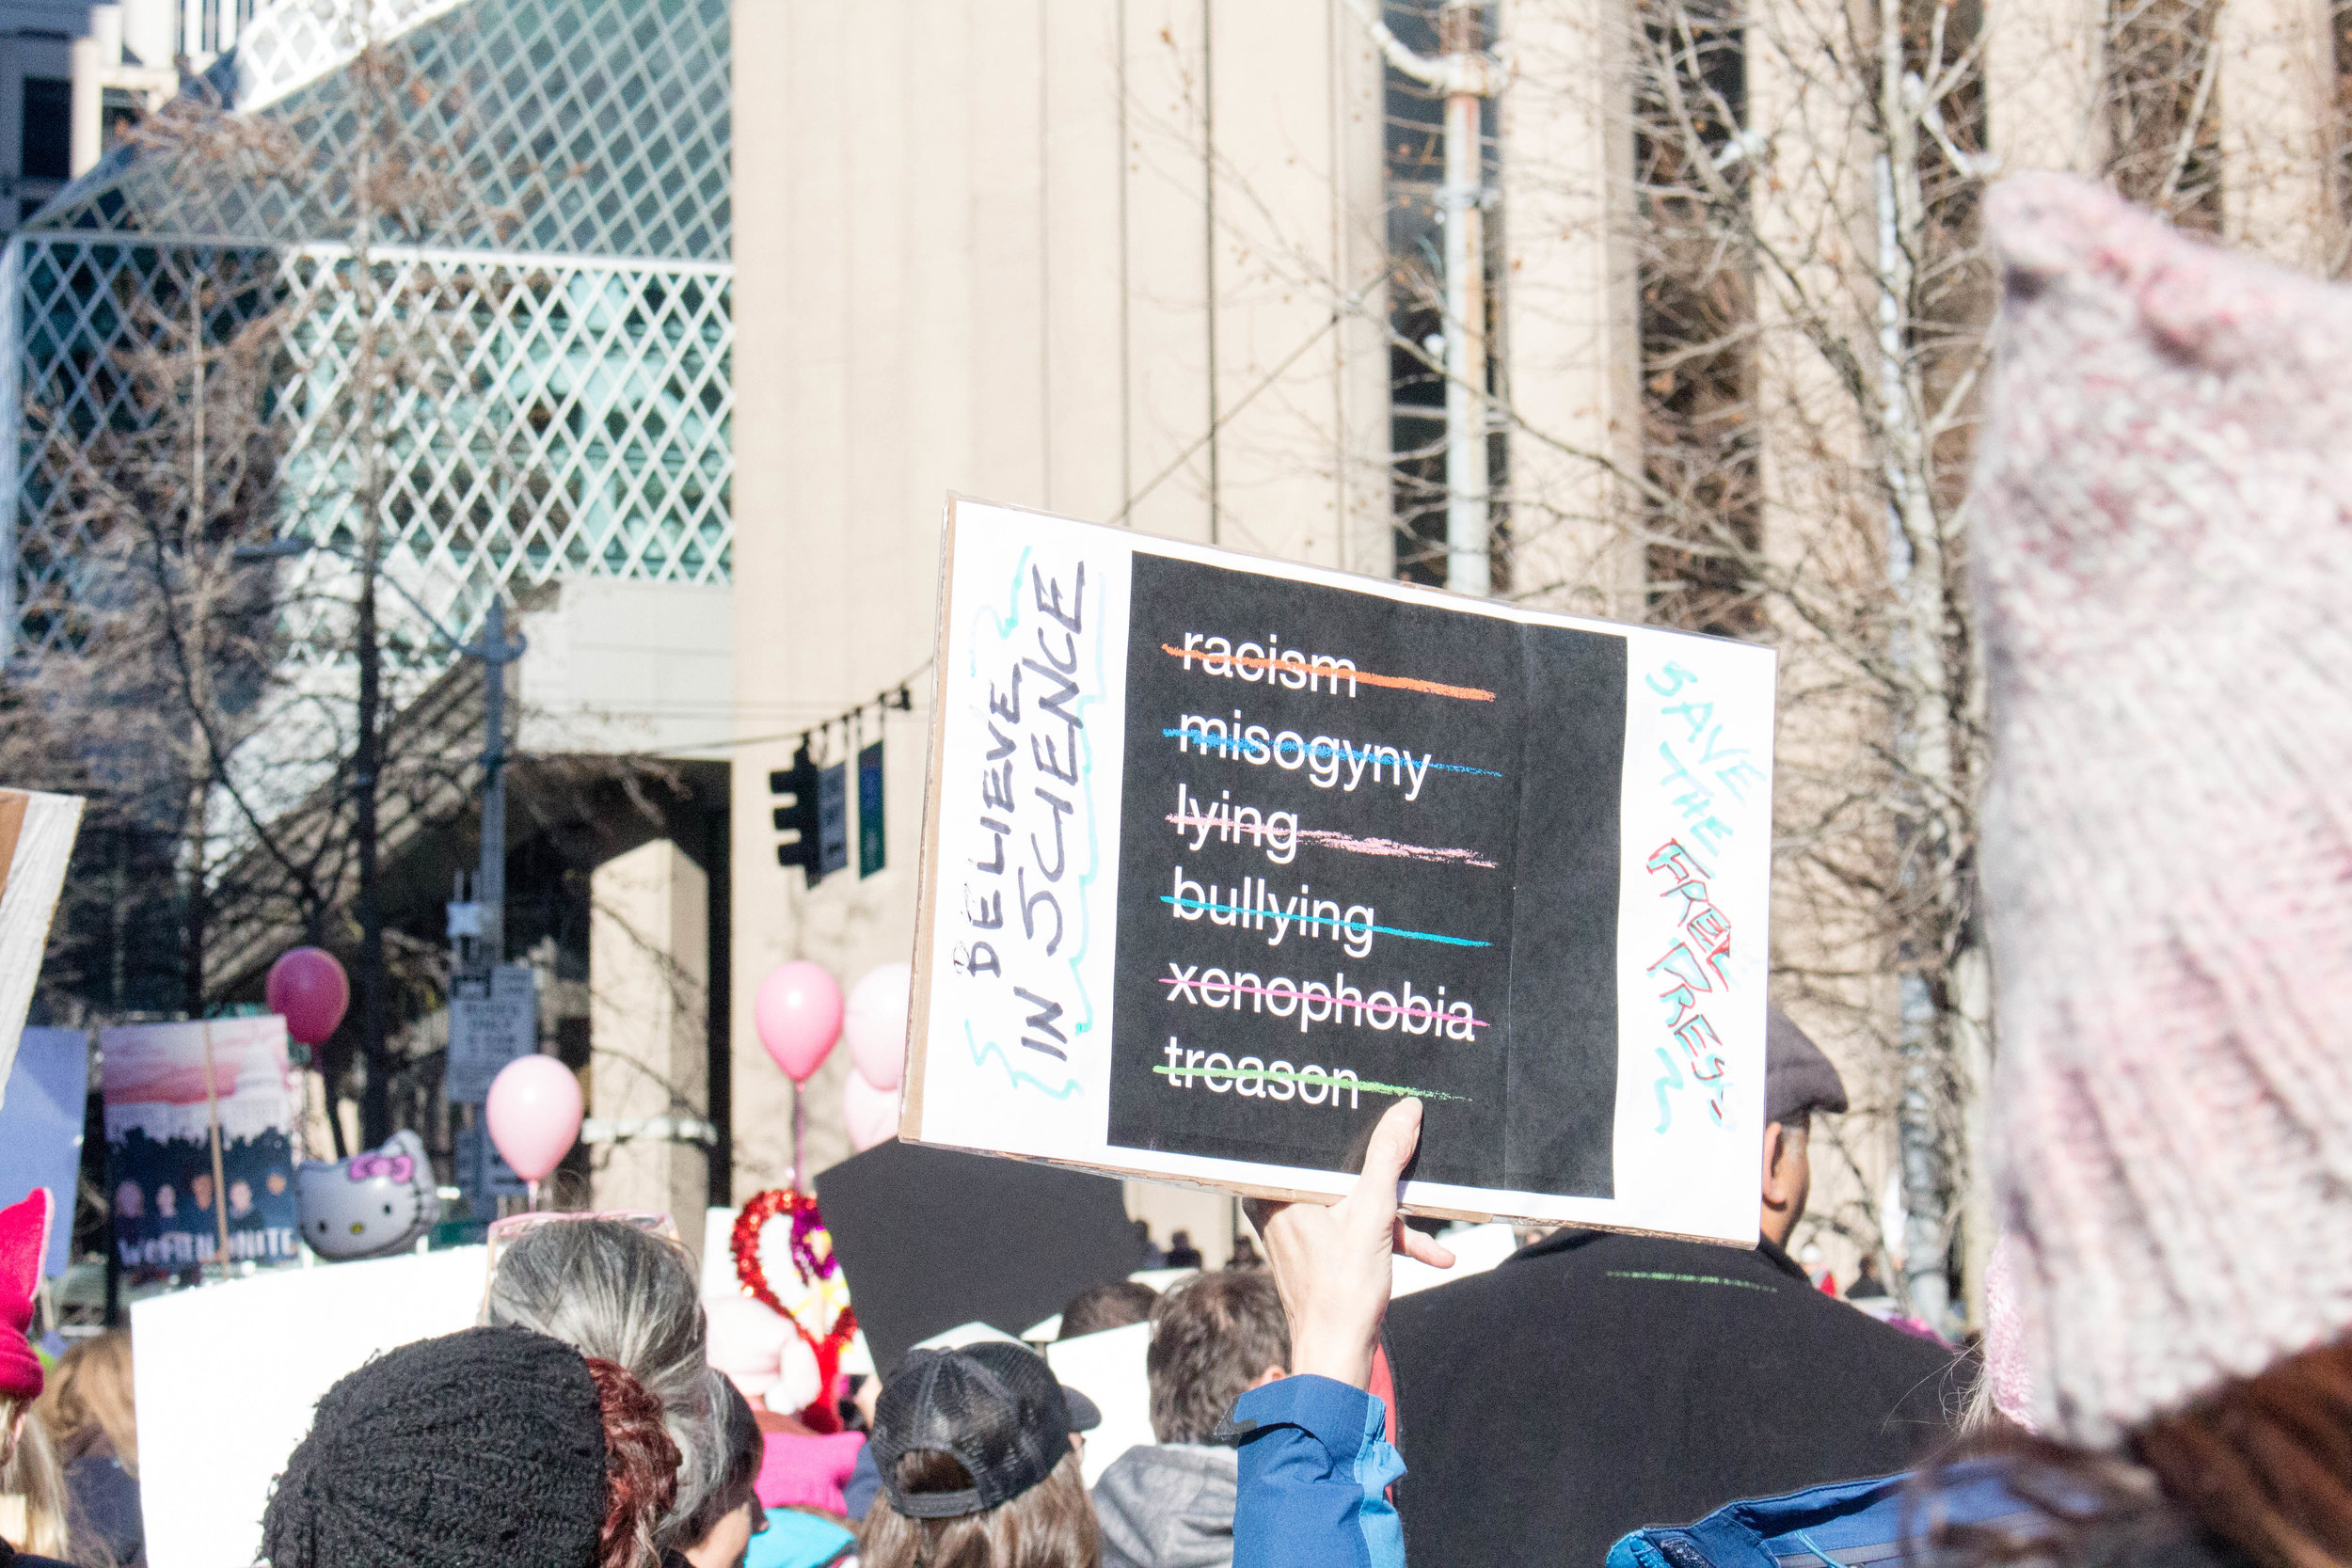 BELIEVE
IN SCIENCE
racism
misogyny
lying
bullying
xenophobia
treason
SAVE
THE
FREE
PRESS
WOMEN UNITE